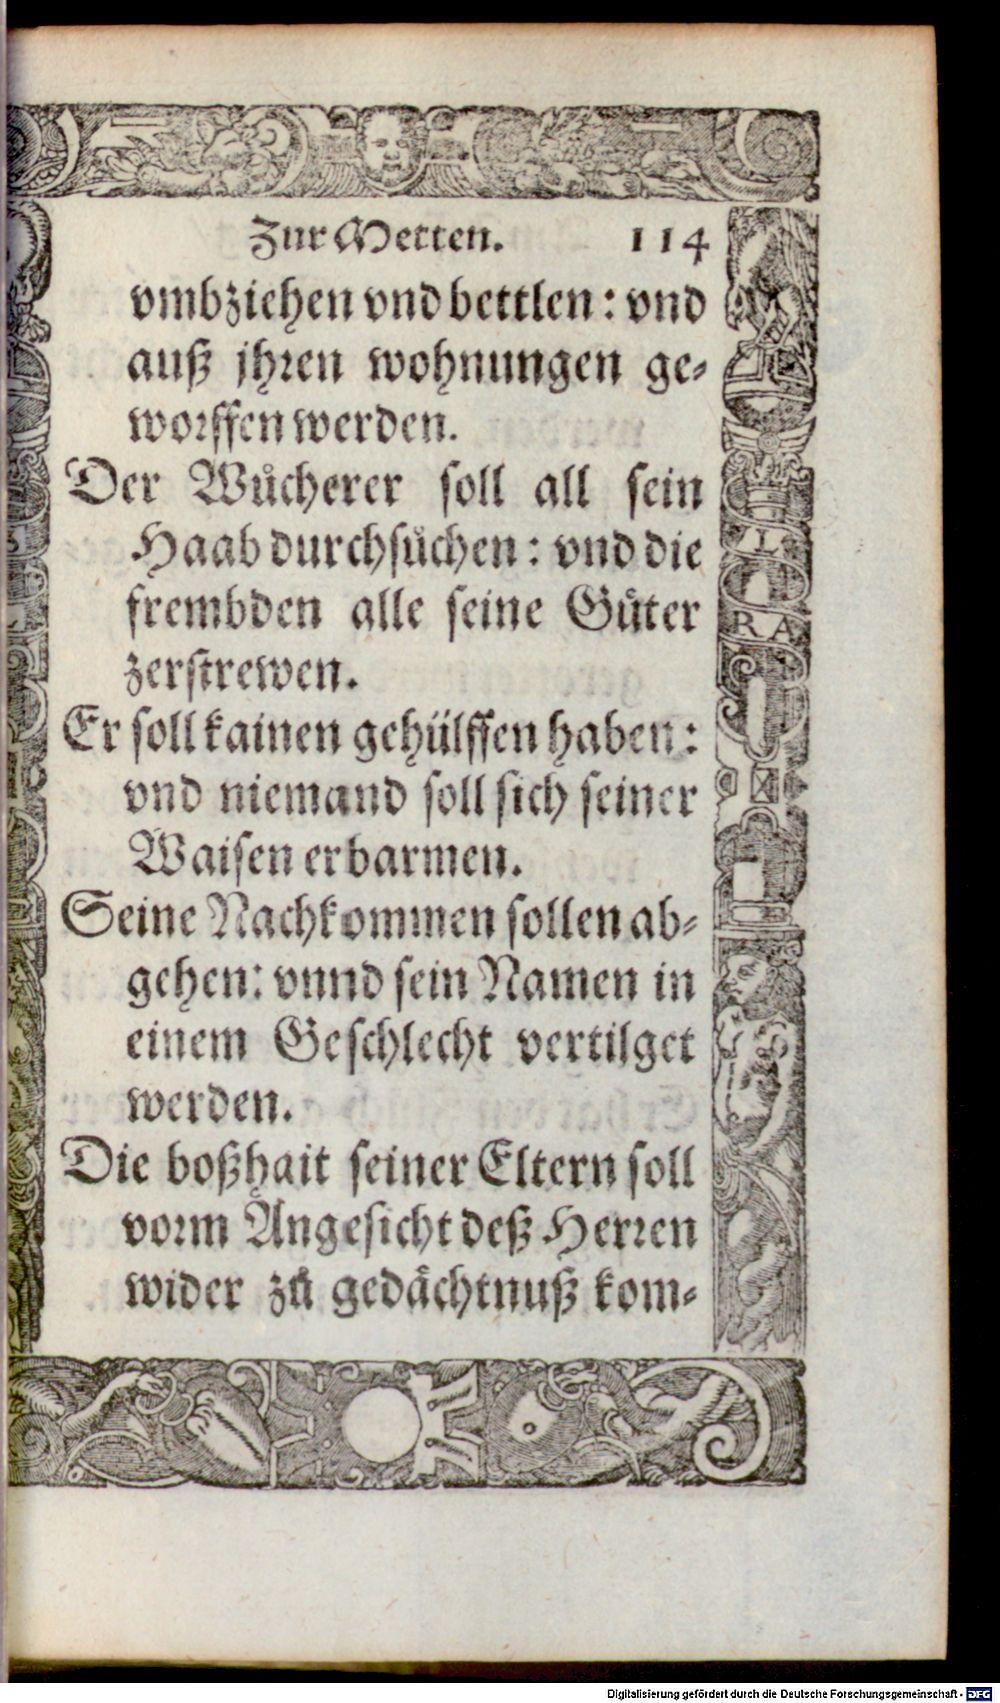 Zur Metten. 114
vmbziehen vnd bettlen: vnd
auß jhren wohnungen ge⸗
worffen werden.
Der Wůcherer soll all sein
Haab durchsůchen: vnd die
frembden alle seine Gůter
zerstrewen.
Er soll kainen gehülffen haben:
vnd niemand soll sich seiner
Waisen erbarmen.
Seine Nachkommen sollen ab⸗
gehen: vnnd sein Namen in
einem Geschlecht vertilget
werden.
Die boßhait seiner Eltern soll
vorm Angesicht deß Herren
wider zů gedaͤchtnuß kom⸗
L
RA
Digitalisierung gefördert durch die Deutsche Forschungsgemeinschaft - DFG